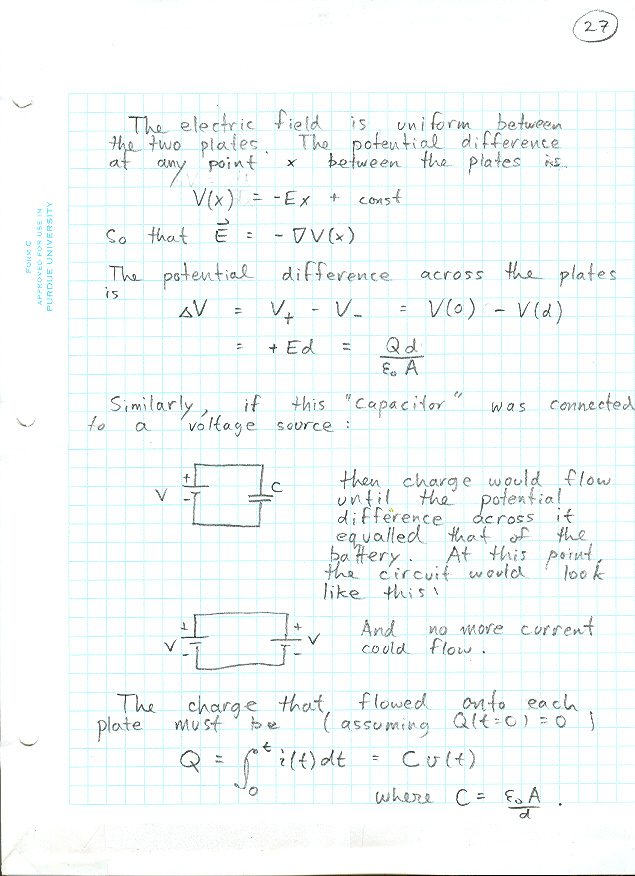 27
The electric field is uniform between
the two plates. The potential difference
at any point x between the plates is
V(x) = -Ex + const
So that E⃗ = -∇V(x)
FORM C
APPROVED FOR USE IN
PURDUE UNIVERSITY
The potential difference across the plates
is
ΔV = V₊ - V₋ = V(0) - V(d)
= +Ed = Qd/ε₀A
Similarly, if this "capacitor" was connected
to a voltage source:
+
V
-
C
then charge would flow
until the potential
difference across it
equalled that of the
battery. At this point,
the circuit would look
like this:
+ +
V V
- -
And no more current
could flow.
The charge that flowed onto each
plate must be (assuming Q(t=0)=0)
Q = ∫₀ᵗ i(t)dt = C v(t)
where C = ε₀A/d.